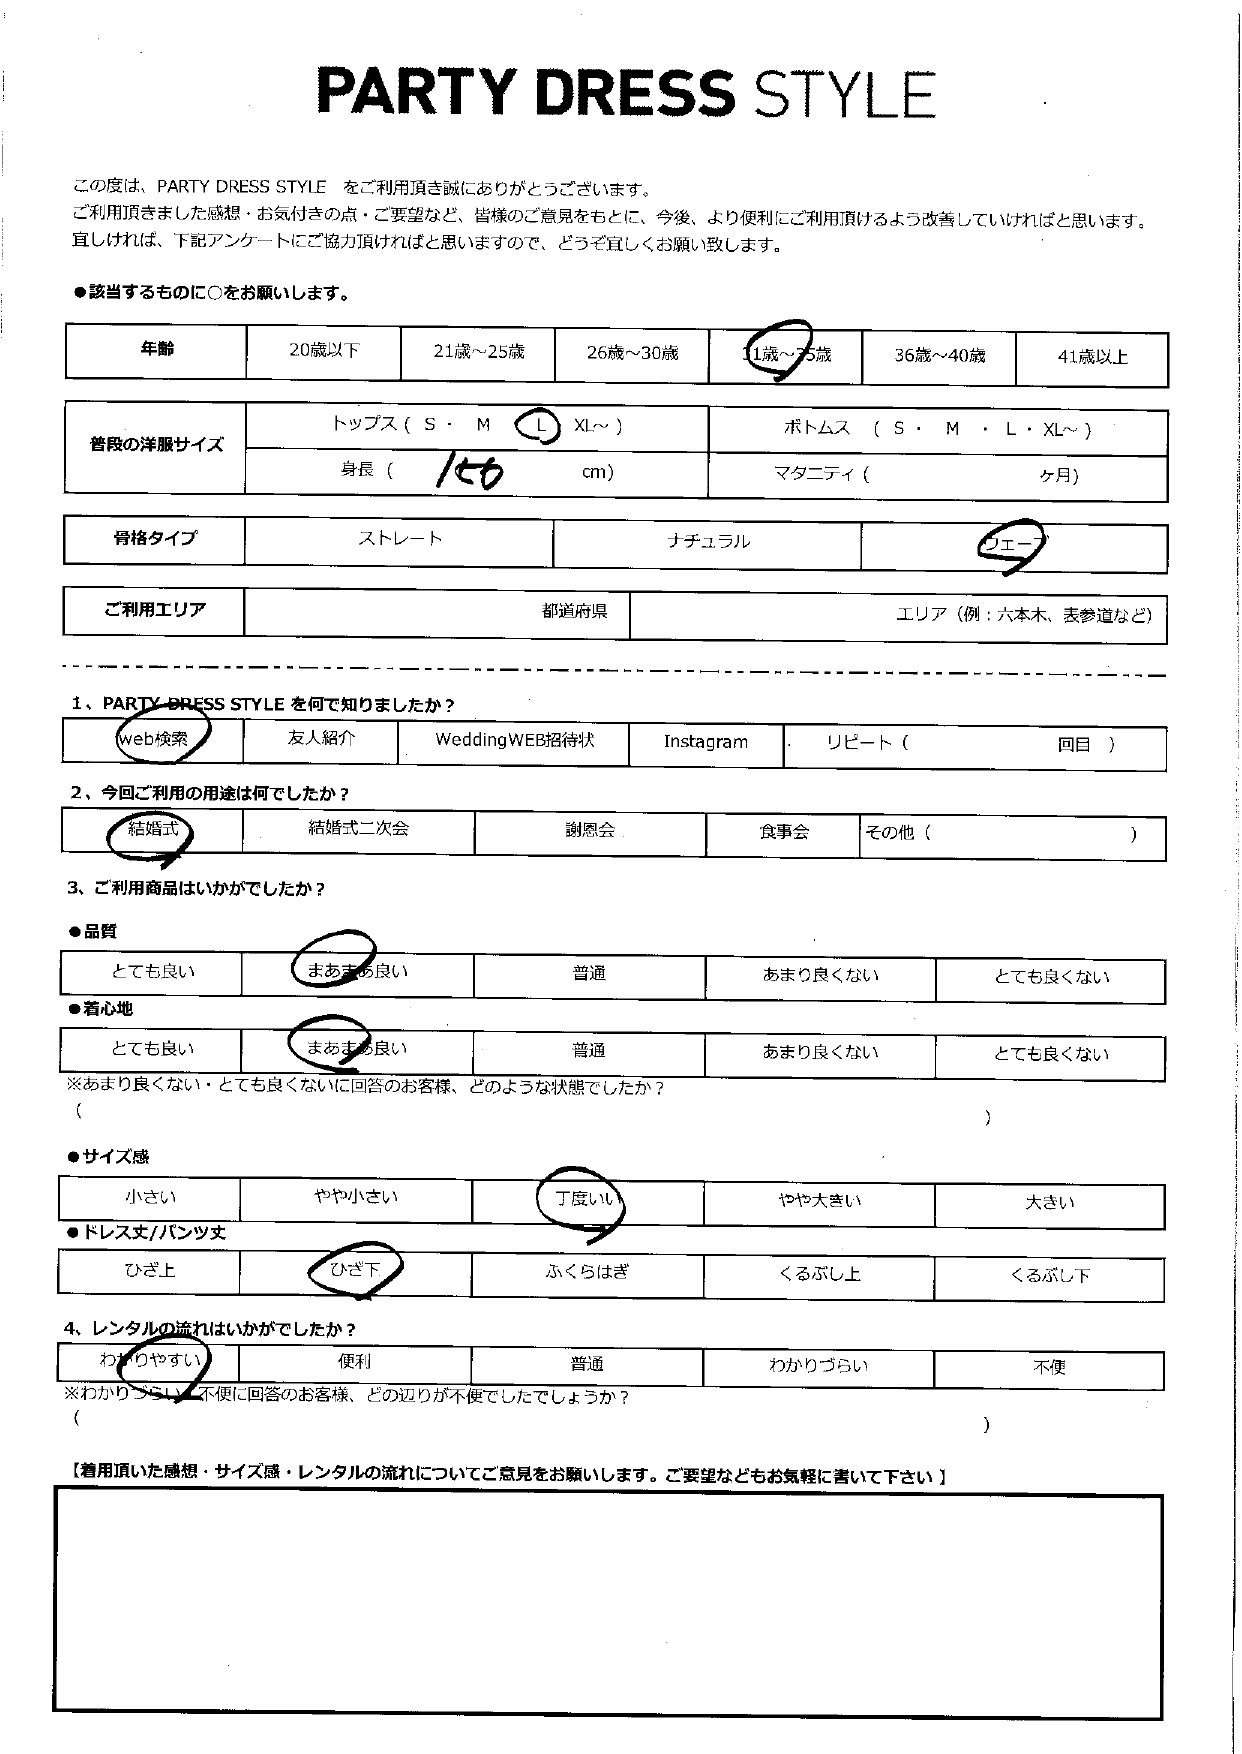 PARTY DRESS STYLE
この度は、PARTY DRESS STYLE をご利用頂き誠にありがとうございます。
ご利用頂きました感想・お気付きの点・ご要望など、皆様のご意見をもとに、今後、より便利にご利用頂けるよう改善していければと思います。
宜しければ、下記アンケートにご協力頂ければと思いますので、どうぞ宜しくお願い致します。
●該当するものに○をお願いします。
年齢 20歳以下 21歳～25歳 26歳～30歳 31歳～35歳 36歳～40歳 41歳以上
普段の洋服サイズ トップス ( S ・ M L XL～ ) ボトムス ( S ・ M ・ L ・ XL～ )
身長 ( cm) マタニティ ( ヶ月)
骨格タイプ ストレート ナチュラル ウェーブ
ご利用エリア 都道府県 エリア（例：六本木、表参道など）
1、PARTY DRESS STYLE を何で知りましたか？
web検索 友人紹介 WeddingWEB招待状 Instagram リピート ( 回目 )
2、今回ご利用の用途は何でしたか？
結婚式 結婚式二次会 謝恩会 食事会 その他 ( )
3、ご利用商品はいかがでしたか？
●品質
とても良い まあまあ良い 普通 あまり良くない とても良くない
●着心地
とても良い まあまあ良い 普通 あまり良くない とても良くない
※あまり良くない・とても良くないに回答のお客様、どのような状態でしたか？
( )
●サイズ感
小さい やや小さい 丁度いい やや大きい 大きい
●ドレス丈/パンツ丈
ひざ上 ひざ下 ふくらはぎ くるぶし上 くるぶし下
4、レンタルの流れはいかがでしたか？
わかりやすい 便利 普通 わかりづらい 不便
※わかりづらい・不便に回答のお客様、どの辺りが不便でしたでしょうか？
( )
【着用頂いた感想・サイズ感・レンタルの流れについてご意見をお願いします。ご要望などもお気軽に書いて下さい】